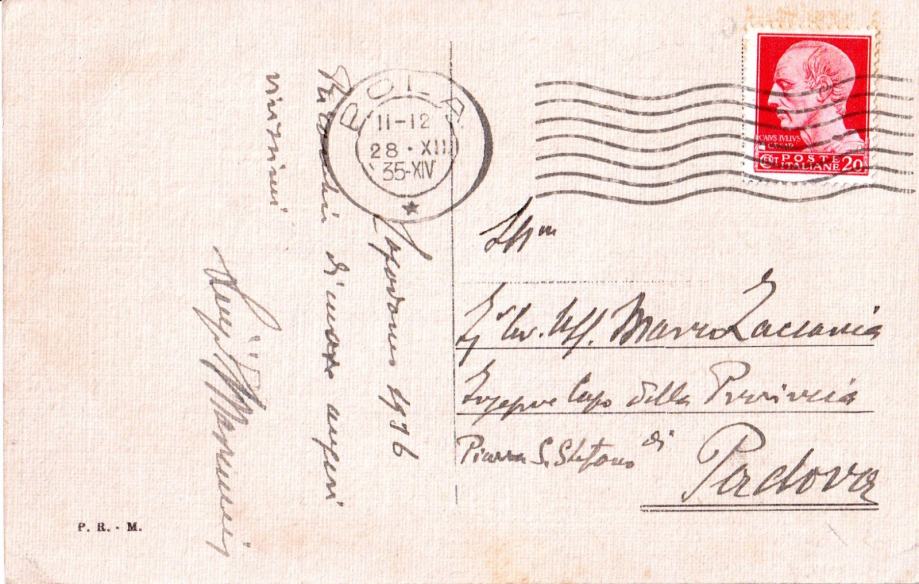 POLA
11-12
28 · XII
35-XIV
CAIVS IVLIVS
CAESAR
CENT POSTE 20
ITALIANE
Ill.mo
Uff. Marco Zaccaria
Ingegnere Capo della Provincia
di
Piazza S. Stefano
Padova
Capodanno 1936
di nuovo auguri
vivissimi
Luigi
P. R. - M.